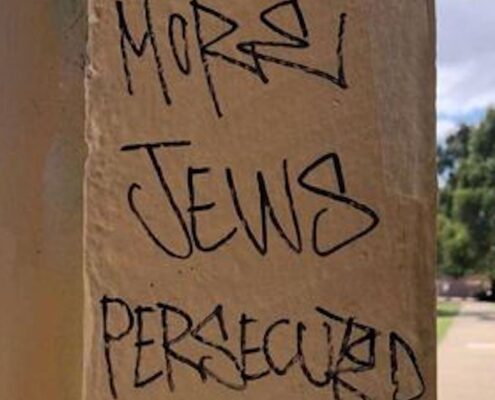 MORE
JEWS
PERSECURD